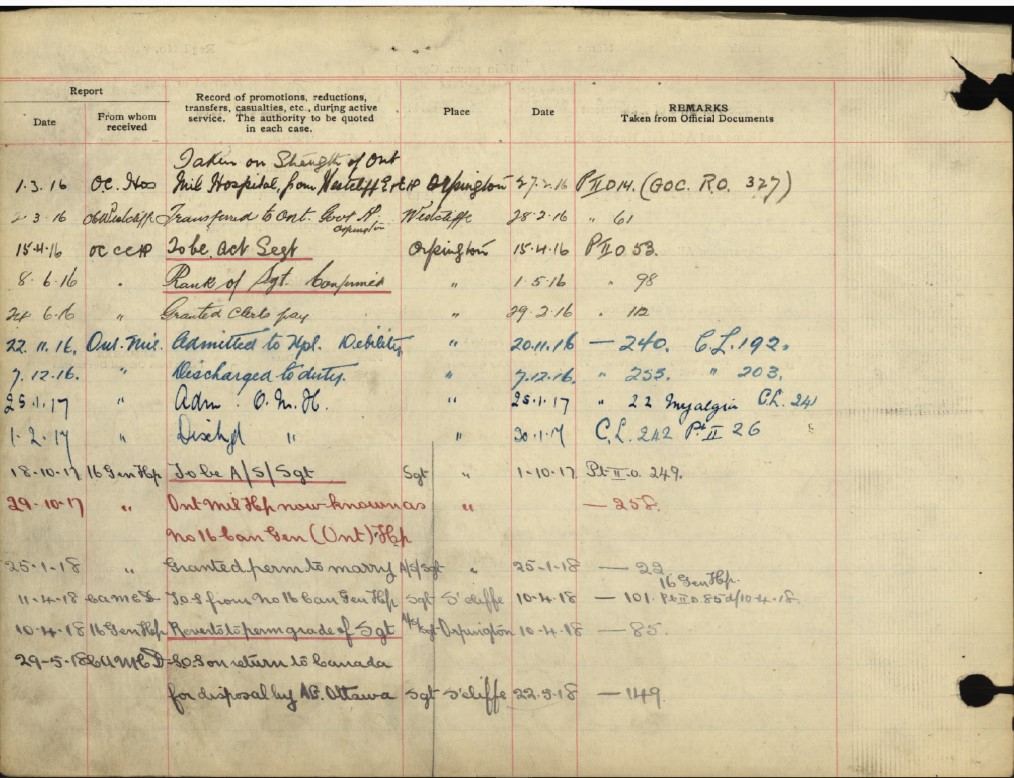 Report
Date
From whom received
Record of promotions, reductions, transfers, casualties, etc., during active service. The authority to be quoted in each case.
Place
Date
REMARKS
Taken from Official Documents
Taken on Strength of Ont
1.3.16 O.C. Hos Mil Hospital, from Westcliff E & E H Orpington 27.2.16 Pt II O 14. (GOC. R.O. 327)
2-3-16 Westcliffe Transferred to Ont. Govt H. Westcliffe 28-2-16 " 61
Orpington
15-4-16 OC CCH To be act Segt Orpington 15.4.16 Pt II O 53.
8.6.16 " Rank of Sgt. Confirmed " 1.5.16 " 98
24 6.16 " Granted Clerks pay " 29.2.16 " 112
22.11.16. Ont. Mil. Admitted to Hpl. Debility " 20.11.16 — 240. C.L. 192.
7.12.16. " Discharged to duty. " 7.12.16. " 255. " 203.
25.1.17 " Adm: O.M.H. " 25.1.17 " 22 Myalgia C.L. 241
1.2.17 " Dischgd " " 30.1.17 C.L. 242 Pt II 26
18-10-17 16 Gen Hp To be A/S/Sgt Sgt " 1-10-17. Pt II o. 249.
29-10-17 " Ont Mil Hp now known as " — 258.
No 16 Can Gen (Ont) Hp
25-1-18 " Granted perm to marry A/S/Sgt " 25-1-18 — 22
16 Gen Hp.
11-4-18 CAMCD T.O.S from No 16 Can Gen Hp Sgt S'cliffe 10-4-18 — 101. Pt II o 85 d/10-4-18.
10-4-18 16 Gen Hp Reverts to perm grade of Sgt A/S/Sgt Orpington 10-4-18 — 85.
29-5-18 CAMCD S.O.S on return to Canada
for disposal by AG. Ottawa Sgt S'cliffe 22-5-18 — 149.